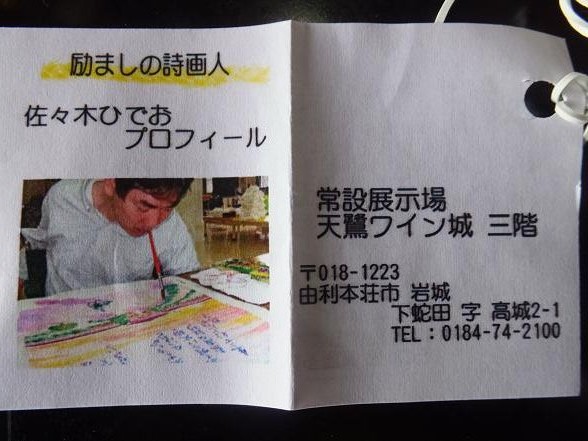 励ましの詩画人
佐々木ひでお
プロフィール
常設展示場
天鷺ワイン城 三階
〒018-1223
由利本荘市 岩城
下蛇田 字 高城2-1
TEL：0184-74-2100